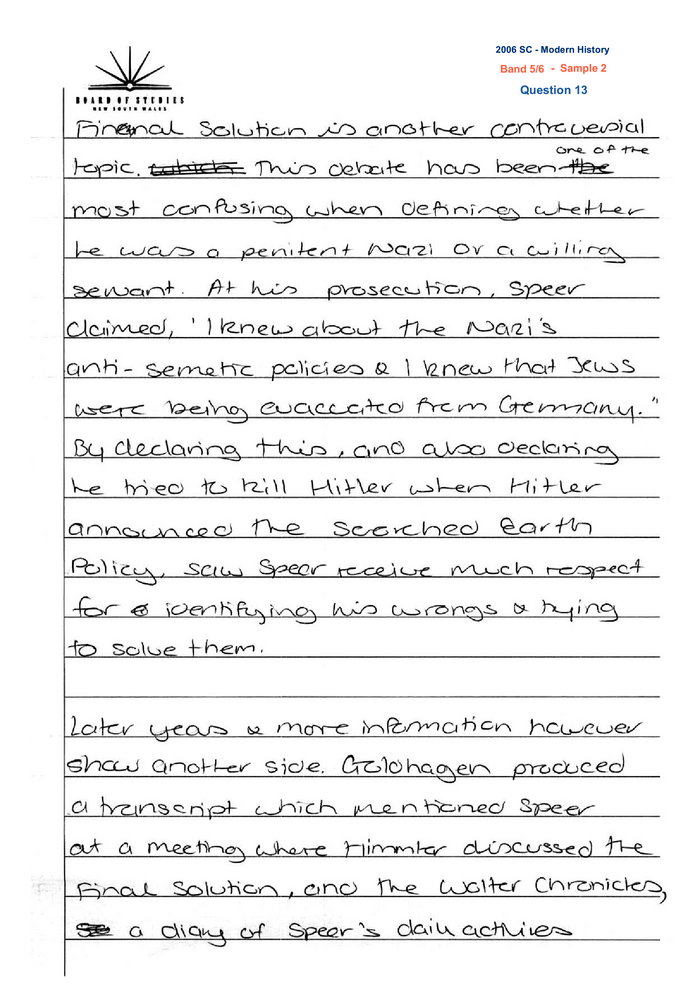 2006 SC - Modern History
Band 5/6 - Sample 2
Question 13
BOARD OF STUDIES
NEW SOUTH WALES
Finanal Solution is another controversial
topic. which This debate has been the one of the
most confusing when defining whether
he was a penitent Nazi or a willing
servant. At his prosecution, Speer
claimed, 'I knew about the Nazi's
anti-semetic policies & I knew that Jews
were being evaccated from Germany."
By declaring this, and also declaring
he tried to kill Hitler when Hitler
announced the Scorched Earth
Policy, saw Speer receive much respect
for identifying his wrongs & trying
to solve them.
Later years & more information however
show another side. Goldhagen produced
a transcript which mentioned Speer
at a meeting where Himmler discussed the
Final Solution, and the Walter Chronicles,
a diary of Speer's daily activies